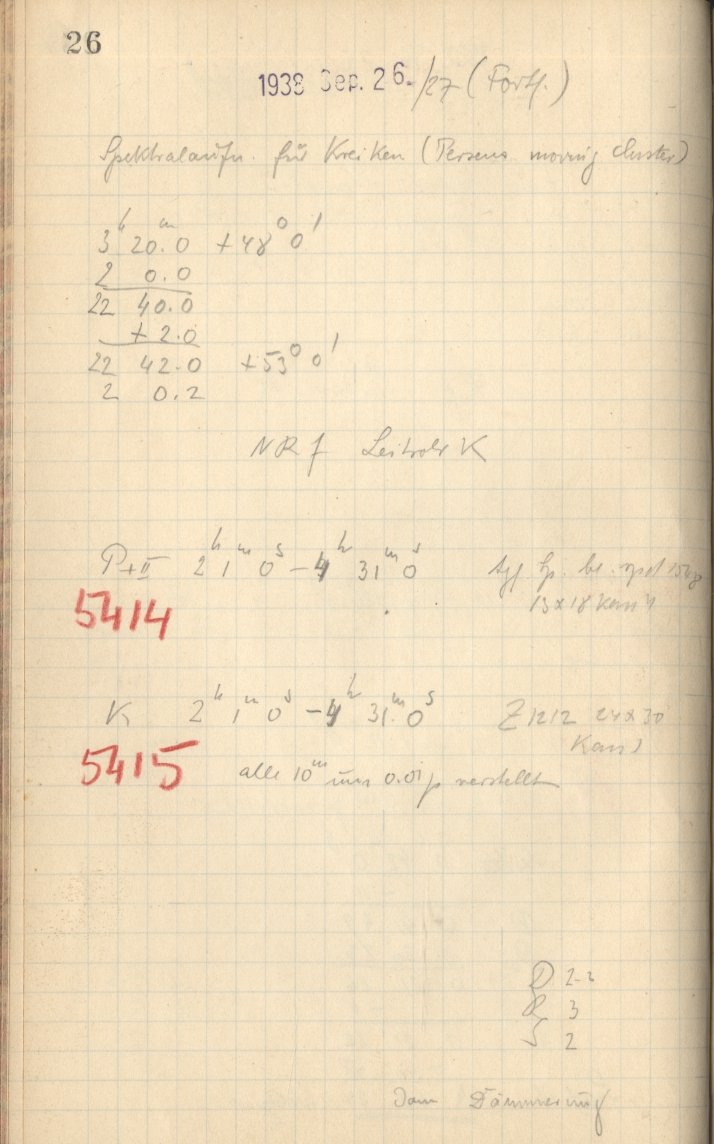 26
1938 Sep. 26./27 (Forts.)
Spektralaufn. für Kreiken (Perseus moving cluster)
3ʰ 20.0ᵐ +48° 0'
2 0.0
22 40.0
+ 2.0
22 42.0 +53° 0'
2 0.2
NR f Leitrohr K
P+II 2ʰ 1ᵐ 0ˢ – 4ʰ 31ᵐ 0ˢ
13x18
5414
K 2ʰ 1ᵐ 0ˢ – 4ʰ 31ᵐ 0ˢ Z 1212 24x30
5415
alle 10ᵐ um 0.01 verstellt
D 2-3
R 3
S 2
Dann Dämmerung